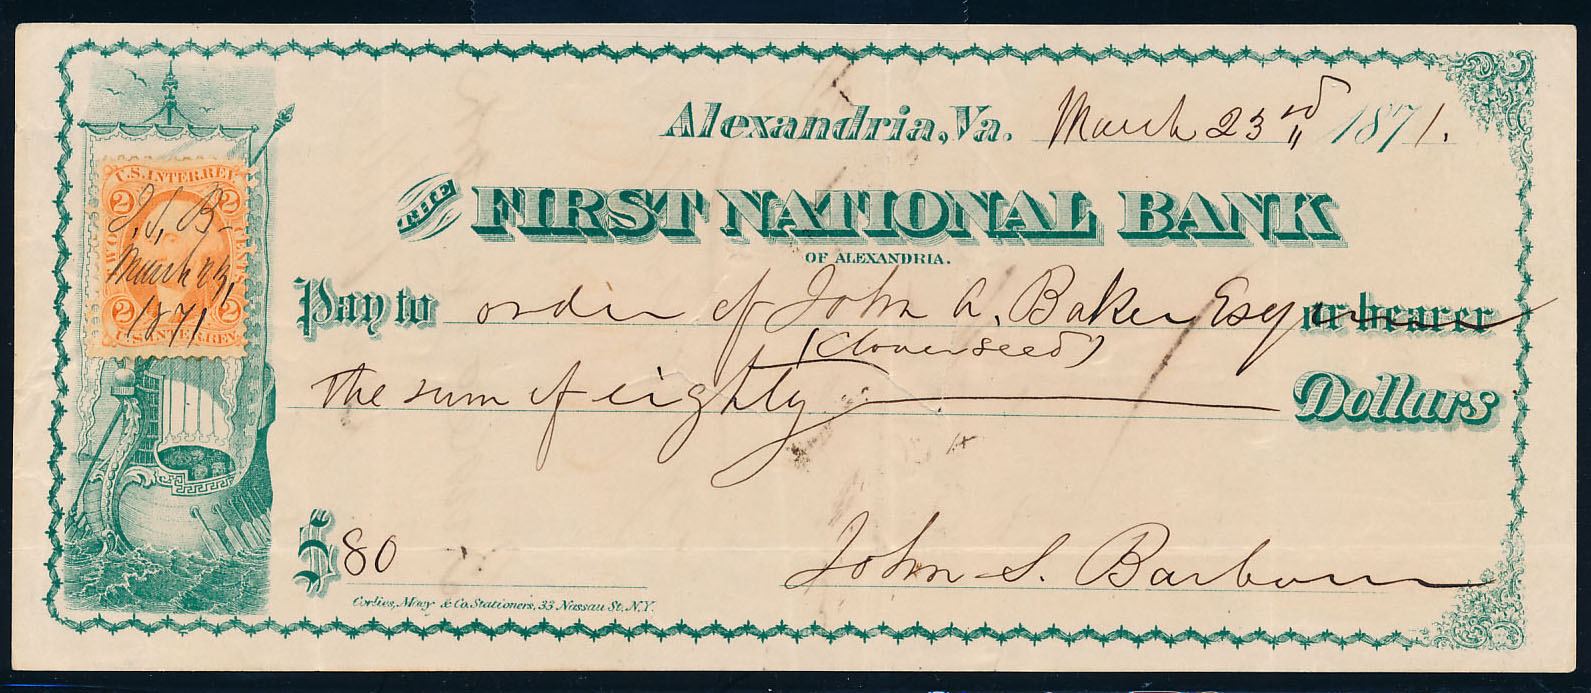 Alexandria, Va. March 23rd 1871.
THE FIRST NATIONAL BANK
OF ALEXANDRIA.
Pay to order of John A. Baker Esq or bearer
(Cloverseed)
the sum of eighty Dollars
$80
John S. Barbour
Corlies, Macy & Co. Stationers, 33 Nassau St. N.Y.
U.S. INTER. REV.
2 2
TWO CENTS
J. S. B.
March 23,
1871
2 2
U.S. INTER. REV.